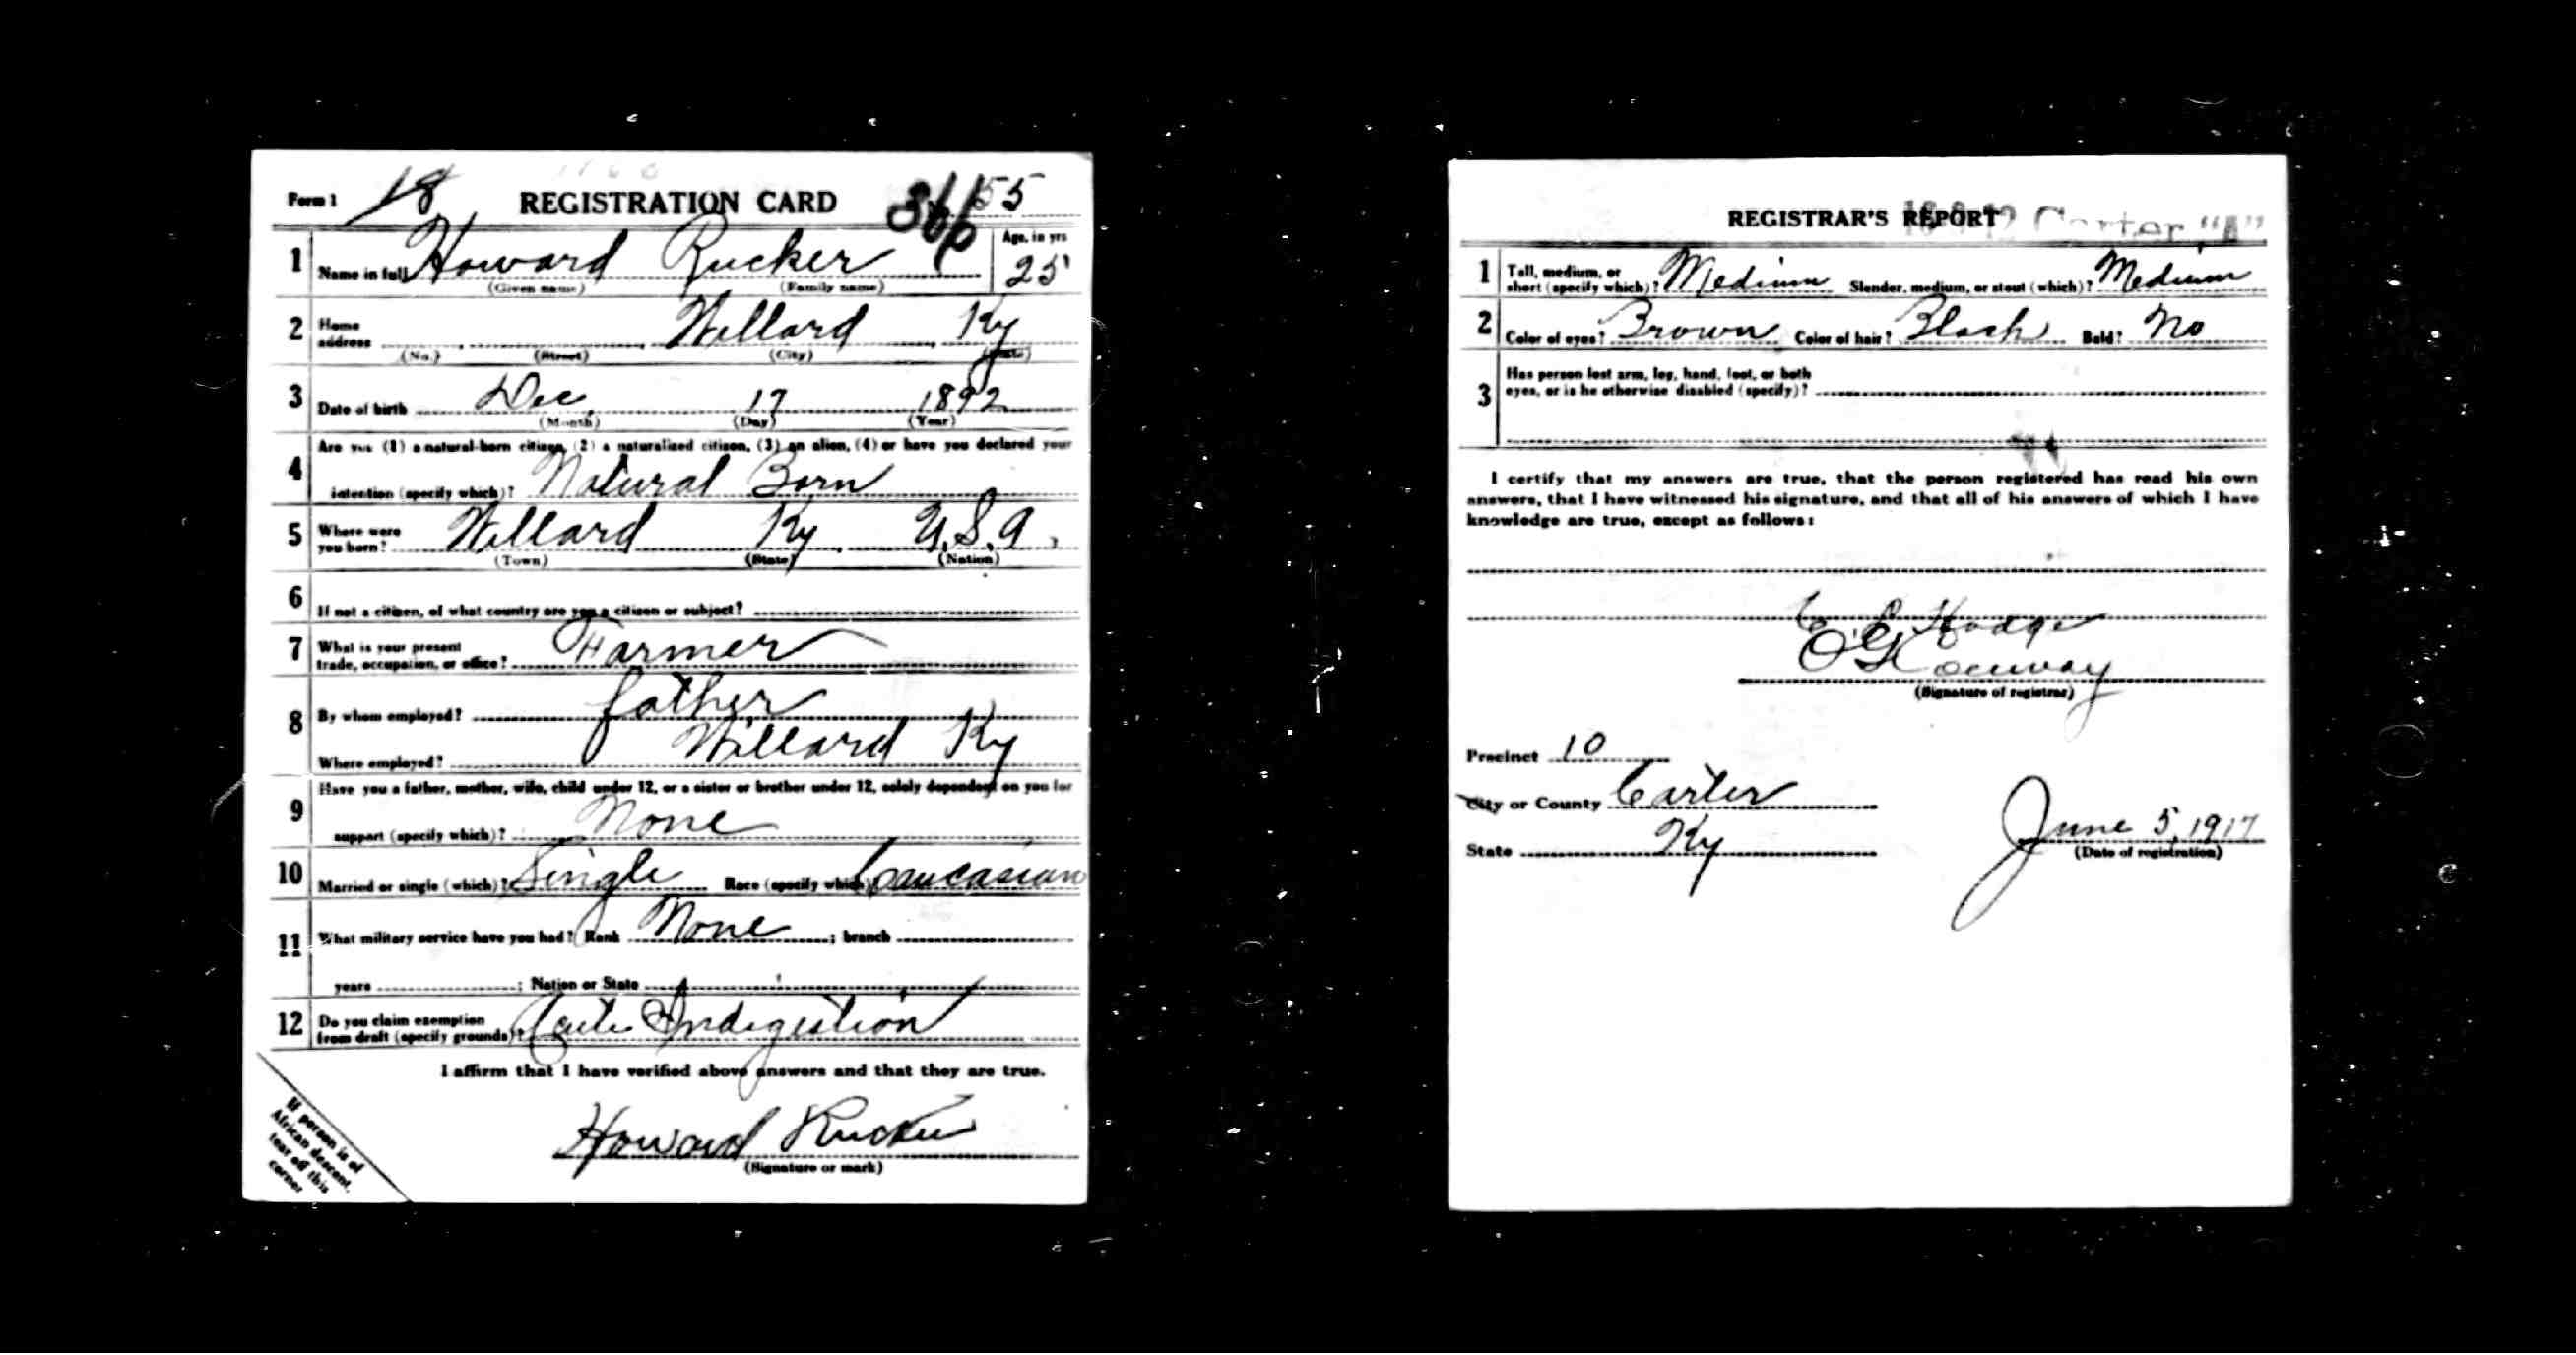 Form 1 18 REGISTRATION CARD 55
1 Name in full Howard Rucker Age, in yrs 25
(Given name) (Family name)
2 Home address Willard Ky
(No.) (Street) (City) (State)
3 Date of birth Dec. 17 1892
(Month) (Day) (Year)
Are you (1) a natural-born citizen, (2) a naturalized citizen, (3) an alien, (4) or have you declared your
4 intention (specify which)? Natural Born
5 Where were you born? Willard Ky. U.S.A.
(Town) (State) (Nation)
6 If not a citizen, of what country are you a citizen or subject?
7 What is your present trade, occupation, or office? Farmer
8 By whom employed? father
Where employed? Willard Ky
Have you a father, mother, wife, child under 12, or a sister or brother under 12, solely dependent on you for
9 support (specify which)? None
10 Married or single (which)? Single Race (specify which) Caucasian
11 What military service have you had? Rank None ; branch
years ; Nation or State
12 Do you claim exemption from draft (specify grounds)? Acute Indigestion
I affirm that I have verified above answers and that they are true.
Howard Rucker
(Signature or mark)
If person is of
African descent,
tear off this
corner
REGISTRAR'S REPORT Carter "A"
1 Tall, medium, or short (specify which)? Medium Slender, medium, or stout (which)? Medium
2 Color of eyes? Brown Color of hair? Black Bald? No
3 Has person lost arm, leg, hand, foot, or both
eyes, or is he otherwise disabled (specify)?
I certify that my answers are true, that the person registered has read his own
answers, that I have witnessed his signature, and that all of his answers of which I have
knowledge are true, except as follows:
Hodge
Conway
(Signature of registrar)
Precinct 10
City or County Carter
State Ky
June 5, 1917
(Date of registration)